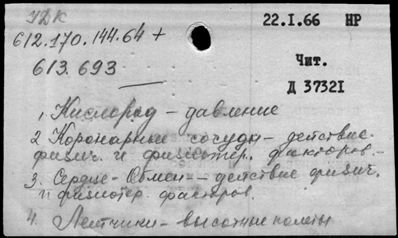 УДК
22.I.66 НР
612.170.144.64 +
613.693
Чит.
Д 37321
1, Кислород – давление
2 Коронарные сосуды – действие
физич. и физиотер. факторов. –
3. Сердце – Обмен – действие физич.
и физиотер. факторов.
4. Летчики – высотные полеты